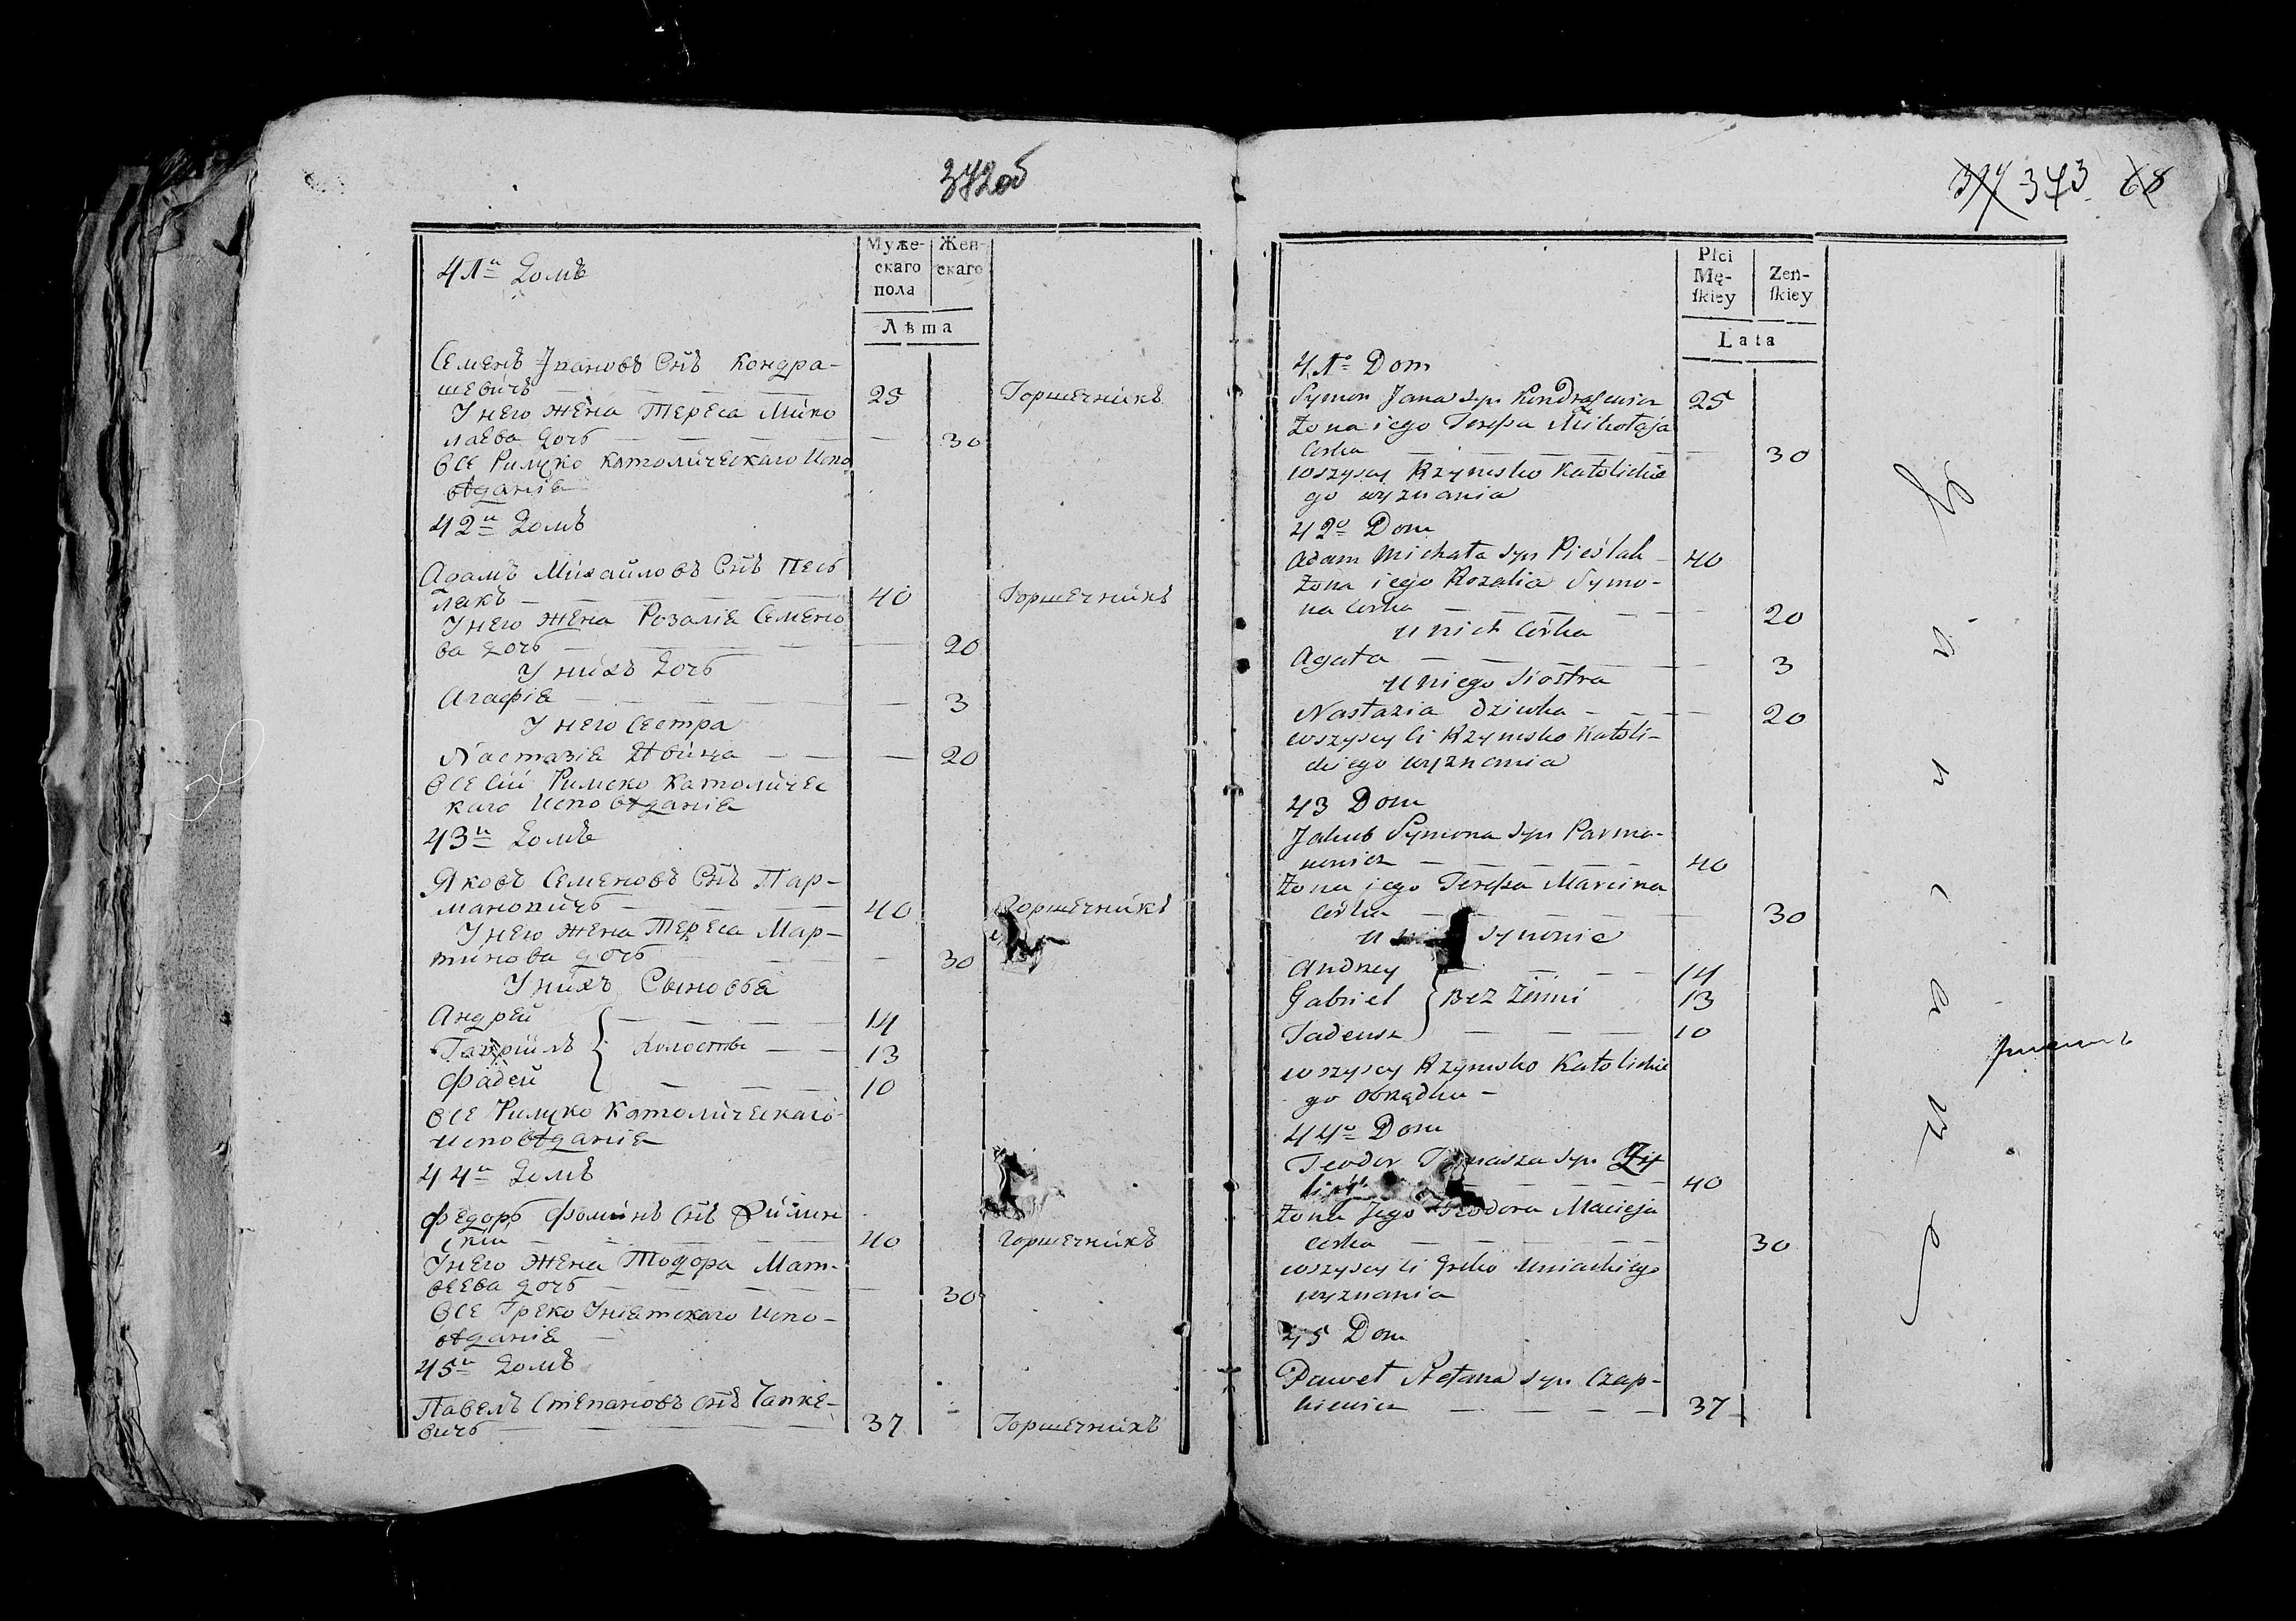 372об
41й Домъ
Муже-
скаго
пола
Жен-
скаго
Лѣта
Семенъ Ивановъ Снъ Кондра-
шевичъ 25 Горшечникъ
У него жена Тереса Мико
лаева дочь 30
Все Римско Католическаго Испо
вѣданія
42й Домъ
Адамъ Михайловъ Снъ Песь
лякъ 40 Горшечникъ
У него жена Розалія Семено
ва дочь 20
У нихъ дочь
Агафія 3
У него Сестра
Настазія Двица 20
Все сіи Римско Католичес
каго Исповѣданія
43й Домъ
Яковъ Семеновъ Снъ Пар-
мановичъ 40 Горшечникъ
У него жена Тереса Мар-
тинова дочь 30
У нихъ Сыновья
Андрей 14
Гавріилъ Холостые 13
Фадей 10
Все Римско Католическаго
Исповѣданія
44й Домъ
Федоръ Фоминъ Снъ
скій 40 Горшечникъ
У него жена Тодора Мат-
веева дочь 30
Все Греко Униятскаго Испо-
вѣданія
45й Домъ
Павелъ Степановъ Снъ Чапке-
вичъ 37 Горшечникъ
373 68
Płci
Mę-
ſkiey
Zeń-
ſkiey
Lata
41o Dom
Symon Jana syn Kondraszewicz 25
Żona iego Teressa Mikołaja
Corka 30
wszyscy Rzymsko Katolickie
go wyznania
42o Dom
Adam Michała syn Pieślak 40
Żona iego Rozalia Symo-
na Corka 20
u nich Córka
Agata 3
u niego Siostra
Nastazia dziwka 20
wszyscy ci Rzymsko Katoli-
ckiego wyznania
43 Dom
Jakub Symona syn Parma-
nowicz 40
Żona jego Teressa Marcina
Corka 30
u synowie
Andrzey 14
Gabriel Bez Żenni 13
Tadeusz 10
wszyscy Rzymsko Katolickie
go obrządku
44o Dom
Teodor Tomasza syn
40
Żona Jego Teodora Macieja
Corka 30
wszyscy ci Greko Uniackiego
wyznania
45 Dom
Paweł Stefana syn Czap-
kiewicz 37
G
a
n
c
a
rz
e